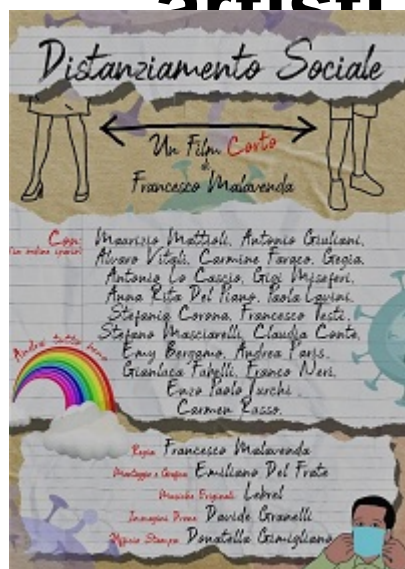 artisti
Distanziamento Sociale
Un Film Corto
di
Francesco Malavenda
Con:
Maurizio Mattioli, Antonio Giuliani,
Alvaro Vitali, Carmine Faraco, Gegia,
Antonio Lo Cascio, Gigi Miseferi,
Anna Rita Del Piano, Paola Lavini,
Stefania Corona, Francesco Testi,
Stefano Masciarelli, Claudia Conte,
Emy Bergamo, Andrea Paris,
Gianluca Fubelli, Franco Neri,
Enzo Paolo Turchi,
Carmen Russo.
Andrà tutto bene
Regia Francesco Malavenda
Montaggio e Grafica Emiliano Del Frate
Musiche Originali Lebrel
Immagini Drone Davide Granelli
Ufficio Stampa Donatella Gimigliano